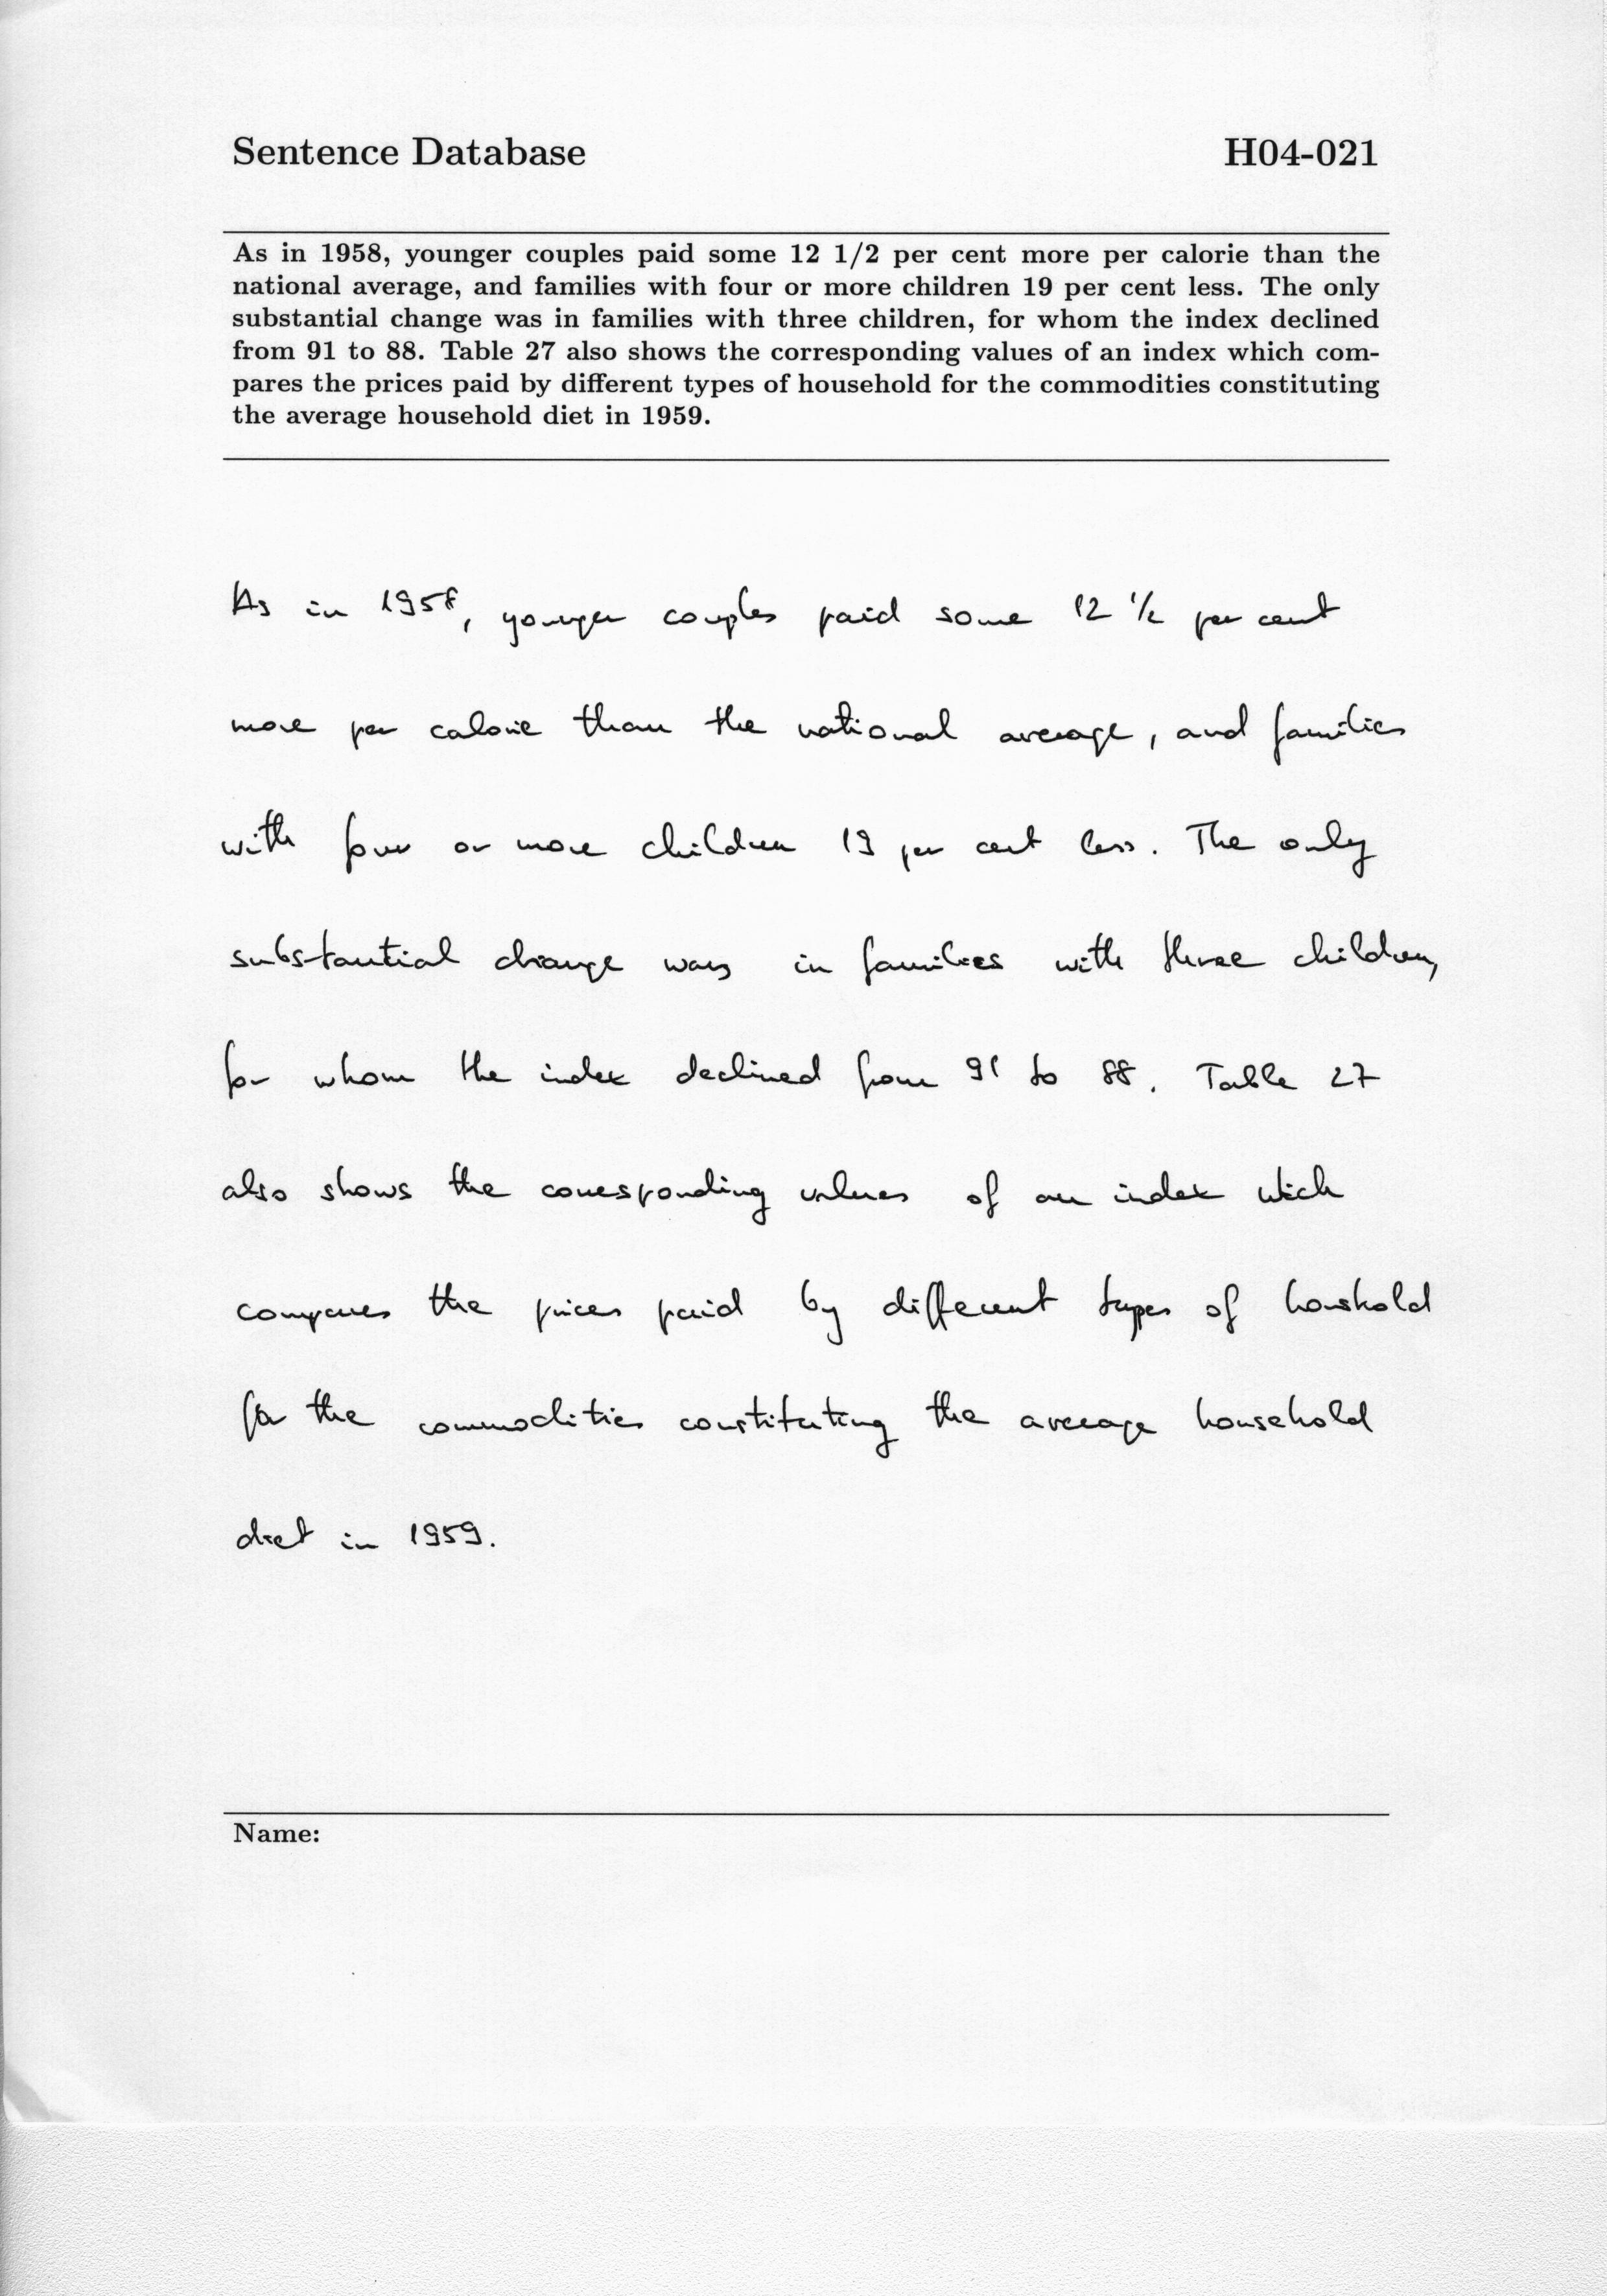 Sentence Database H04-021
As in 1958, younger couples paid some 12 1/2 per cent more per calorie than the
national average, and families with four or more children 19 per cent less. The only
substantial change was in families with three children, for whom the index declined
from 91 to 88. Table 27 also shows the corresponding values of an index which com-
pares the prices paid by different types of household for the commodities constituting
the average household diet in 1959.
As in 1958, younger couples paid some 12 1/2 per cent
more per calorie than the national average, and families
with four or more children 19 per cent less. The only
substantial change was in families with three children,
for whom the index declined from 91 to 88. Table 27
also shows the corresponding values of an index wich
compares the prices paid by different types of houshold
for the commodities constituting the average household
diet in 1959.
Name: